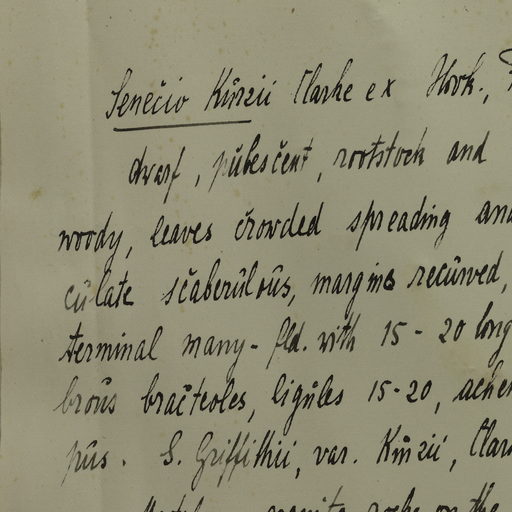 Senecio Kurzii Clarke ex Hook.,
dwarf, pubescent, rootstock and
woody, leaves crowded spreading and
culate scaberulous, margins recurved,
terminal many-fld. with 15-20 long
brous bracteoles, ligules 15-20, achen
pus. S. Griffithii, var. Kurzii, Clar
rocks on the